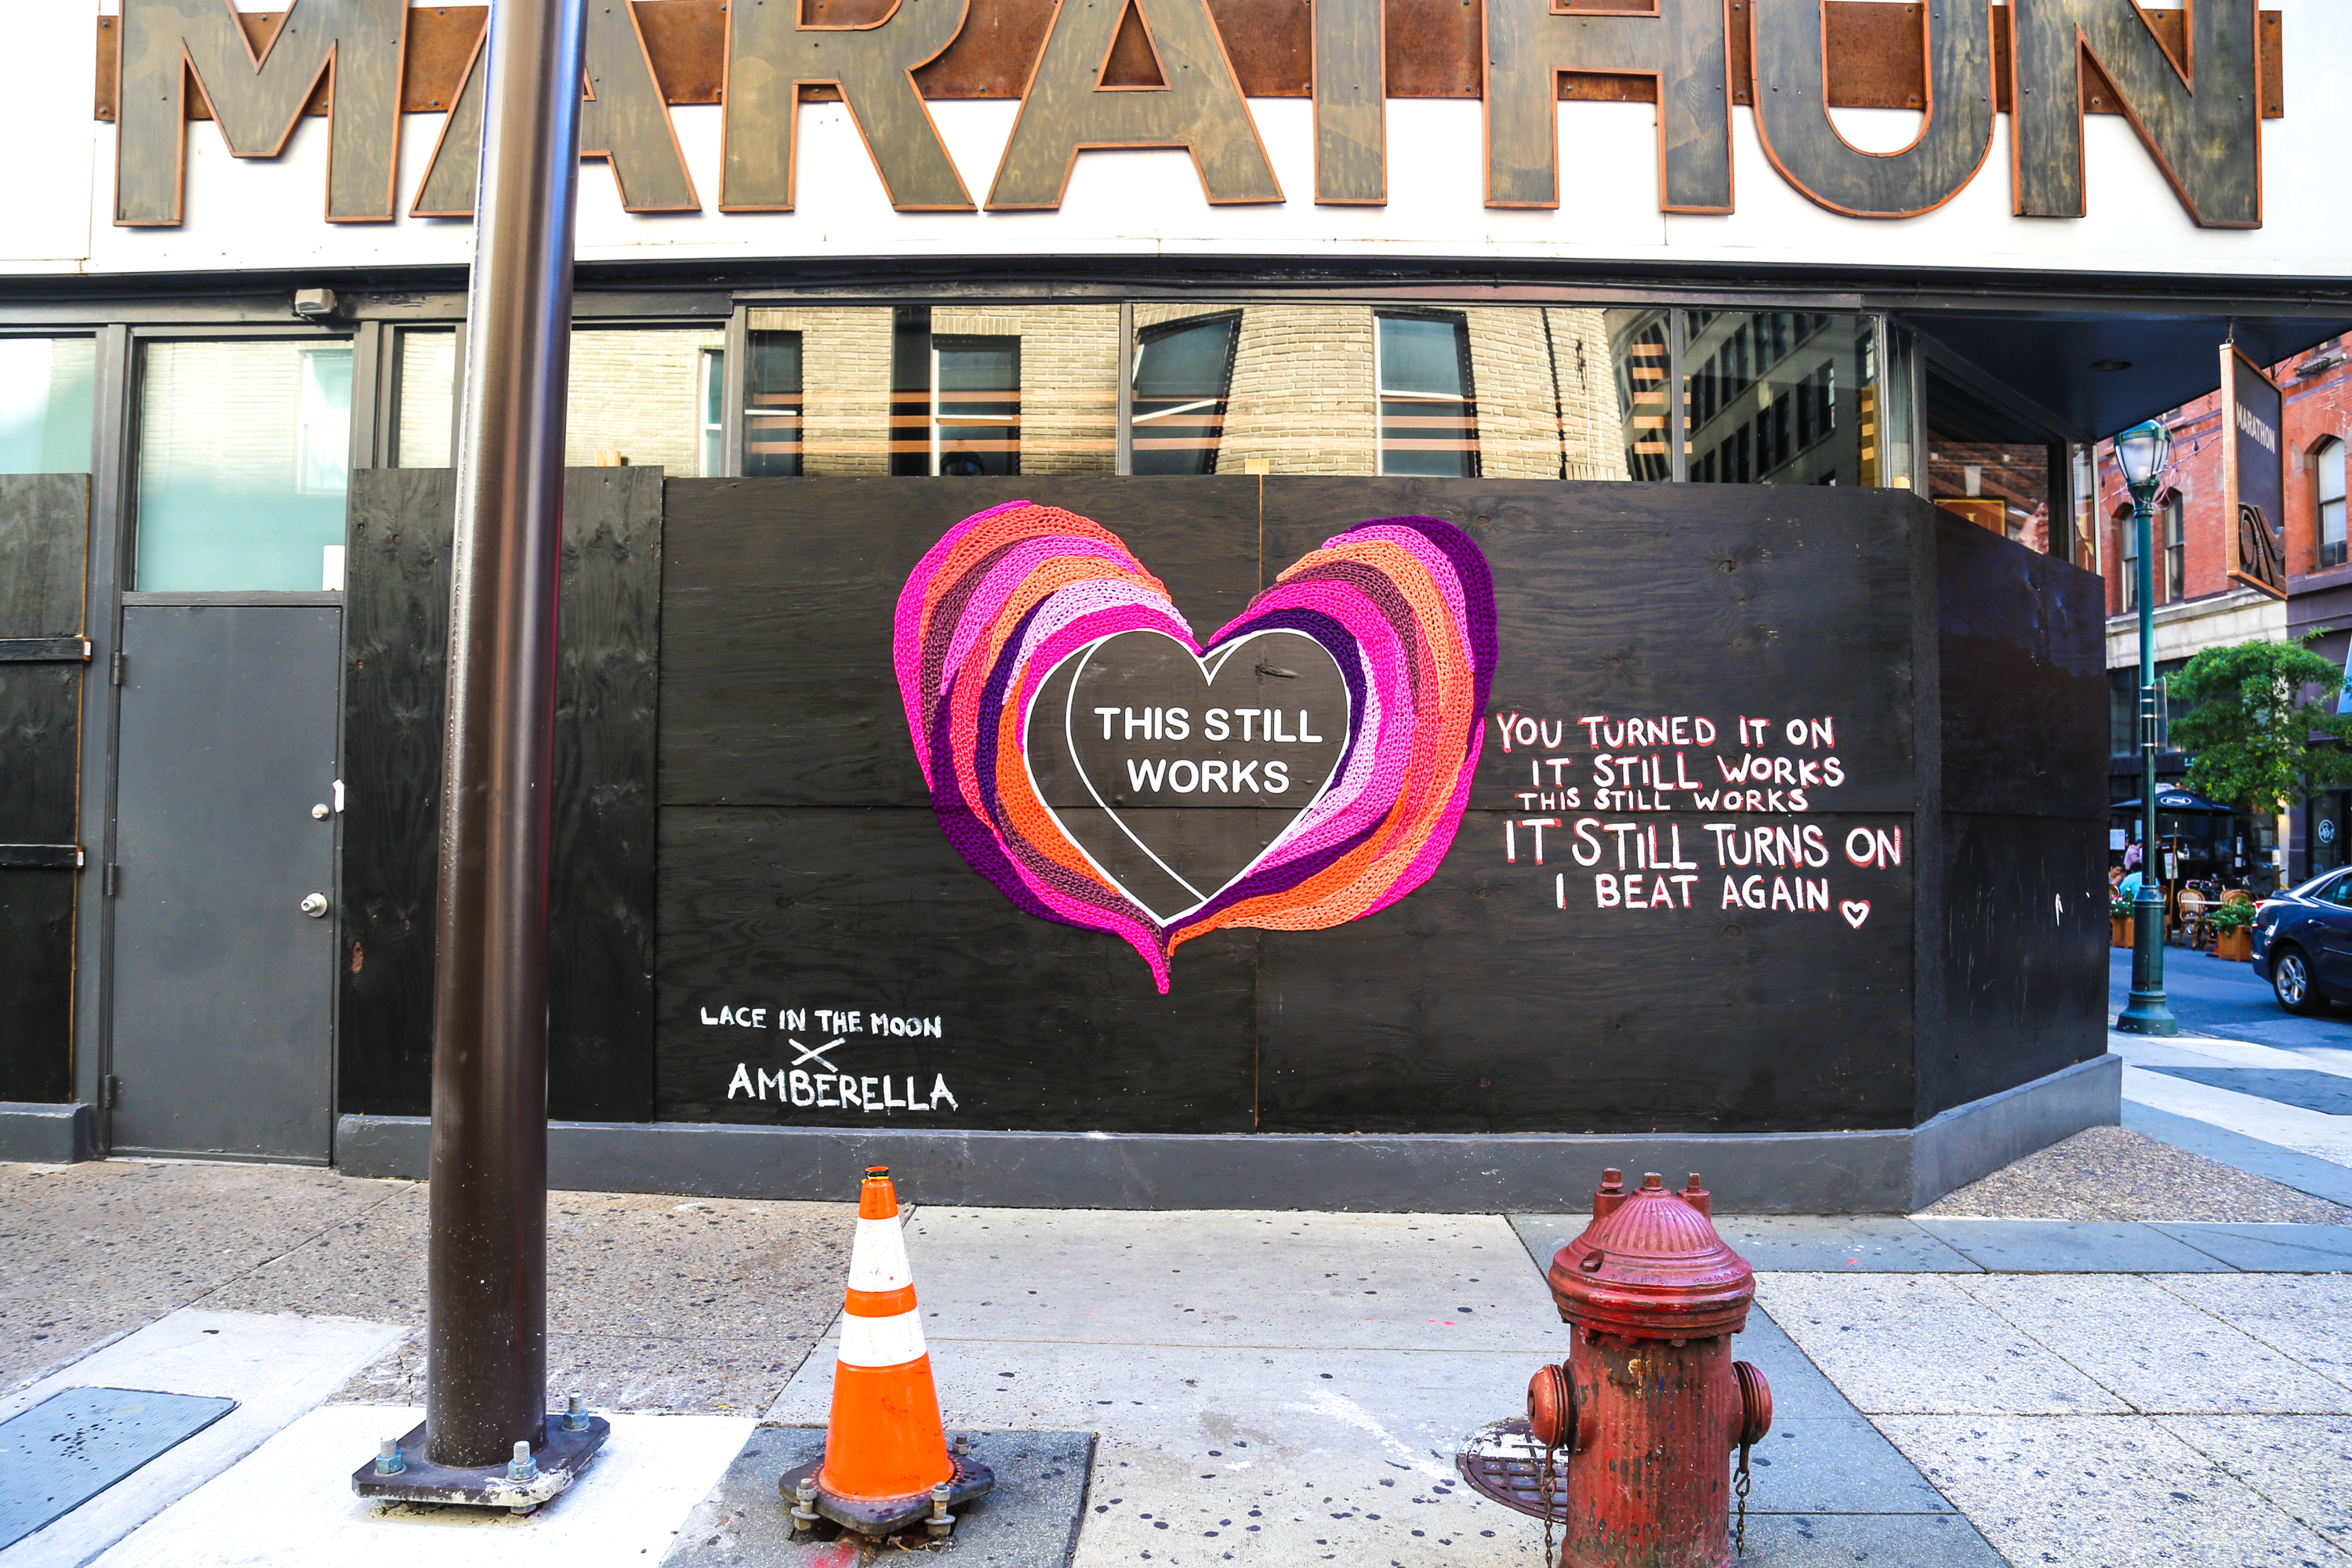 MARATHON
MARATHON
THIS STILL
WORKS
YOU TURNED IT ON
IT STILL WORKS
THIS STILL WORKS
IT STILL TURNS ON
I BEAT AGAIN
LACE IN THE MOON
X
AMBERELLA